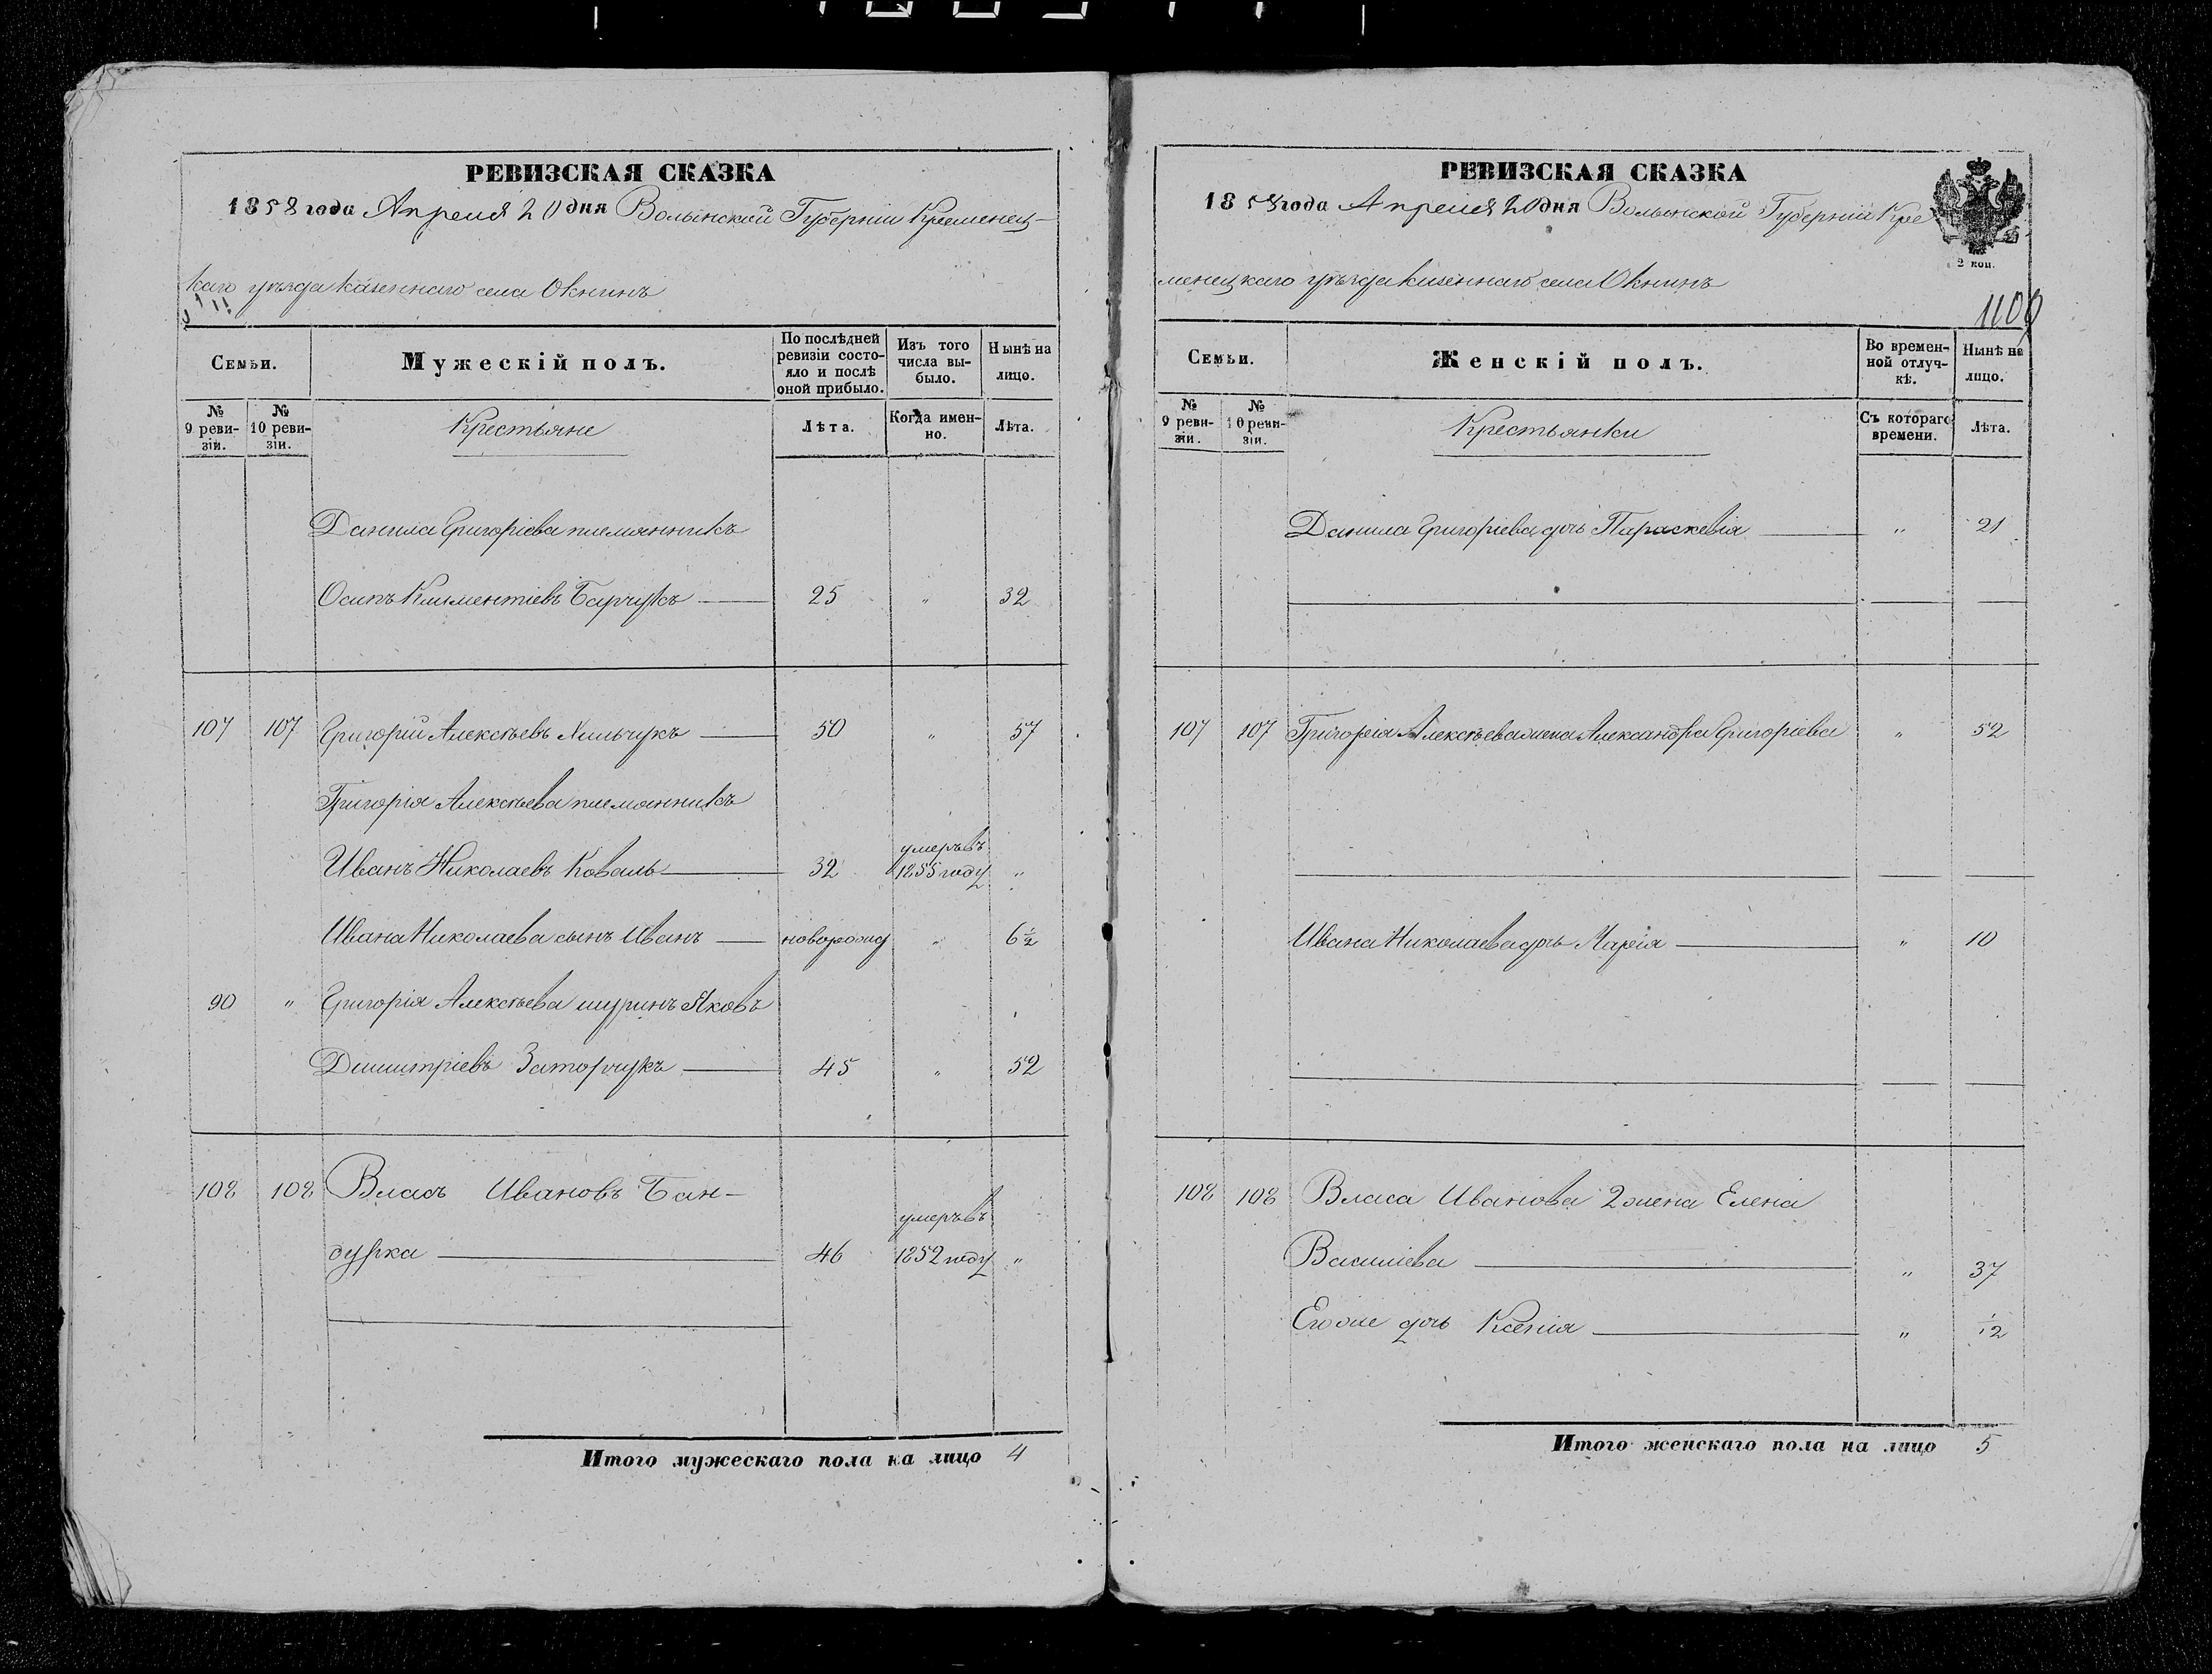 РЕВИЗСКАЯ СКАЗКА
1858 года Апреля 20 дня Волынской Губерніи Кременец-
каго уѣзда казеннаго села Окнинъ
Семьи.
Мужескій полъ.
По послѣдней ревизіи состо-
яло и послѣ оной прибыло.
Изъ того числа вы-
было.
Нынѣ на лицо.
№ 9 реви-
зіи.
№ 10 реви-
зіи.
Крестьяне
Лѣта.
Когда имен-
но.
Лѣта.
Данила Григоріева племянникъ
Осипъ Климентіевъ Барчукъ 25 " 32
107 107 Григорій Алексѣевъ Хильчукъ 50 " 57
Григорія Алексѣева племянникъ
умеръ въ
Иванъ Николаевъ Коваль 32 1855 году "
Ивана Николаева сынъ Иванъ новорожд " 6½
90 " Григорія Алексѣева шуринъ Яковъ
Димитріевъ Заторчукъ 45 " 52
108 108 Власъ Ивановъ Бан-
умеръ въ
дурка 46 1852 году "
Итого мужескаго пола на лицо 4
РЕВИЗСКАЯ СКАЗКА
1858 года Апреля 20 дня Волынской Губерніи Кре
2 коп.
менецкаго уѣзда казеннаго села Окнинъ
1100
Семьи.
Женскій полъ.
Во времен-
ной отлуч-
кѣ.
Нынѣ на лицо.
№ 9 реви-
зіи.
№ 10 реви-
зіи.
Крестьянки
Съ котораго времени.
Лѣта.
Данила Григоріева дочь Параскевія " 21
107 107 Григорія Алексѣева жена Александра Григоріева " 52
Ивана Николаева дочь Марія " 10
108 108 Власа Иванова 2 жена Елена
Василіева " 37
Егоже дочь Ксенія " 12
Итого женскаго пола на лицо 5